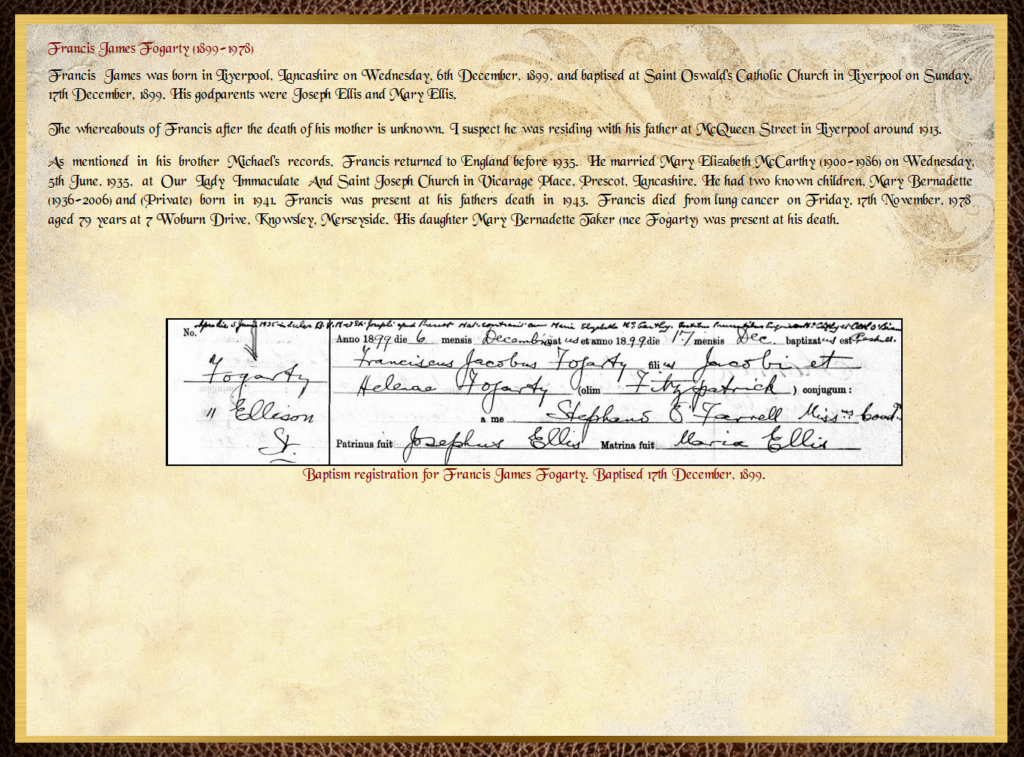 Francis James Fogarty (1899-1978)
Francis James was born in Liverpool, Lancashire on Wednesday, 6th December, 1899, and baptised at Saint Oswald's Catholic Church in Liverpool on Sunday,
17th December, 1899. His godparents were Joseph Ellis and Mary Ellis.
The whereabouts of Francis after the death of his mother is unknown. I suspect he was residing with his father at McQueen Street in Liverpool around 1913.
As mentioned in his brother Michael's records, Francis returned to England before 1935. He married Mary Elizabeth McCarthy (1900-1986) on Wednesday,
5th June, 1935, at Our Lady Immaculate And Saint Joseph Church in Vicarage Place, Prescot, Lancashire. He had two known children, Mary Bernadette
(1936-2006) and (Private) born in 1941. Francis was present at his fathers death in 1943. Francis died from lung cancer on Friday, 17th November, 1978
aged 79 years at 7 Woburn Drive, Knowsley, Merseyside. His daughter Mary Bernadette Taker (nee Fogarty) was present at his death.
No.
Anno 1899 die 6 mensis Decembris nat us et anno 1899 die 17 mensis Dec. baptizatus est
Fogarty
Franciscus Jacobus Fogarty filius Jacobi et
Helenae Fogarty (olim Fitzpatrick ) conjugum :
11 Ellison
St.
a me Stephano O'Farrell Miss. Coad.
Patrinus fuit Josephus Ellis Matrina fuit Maria Ellis
Baptism registration for Francis James Fogarty. Baptised 17th December, 1899.